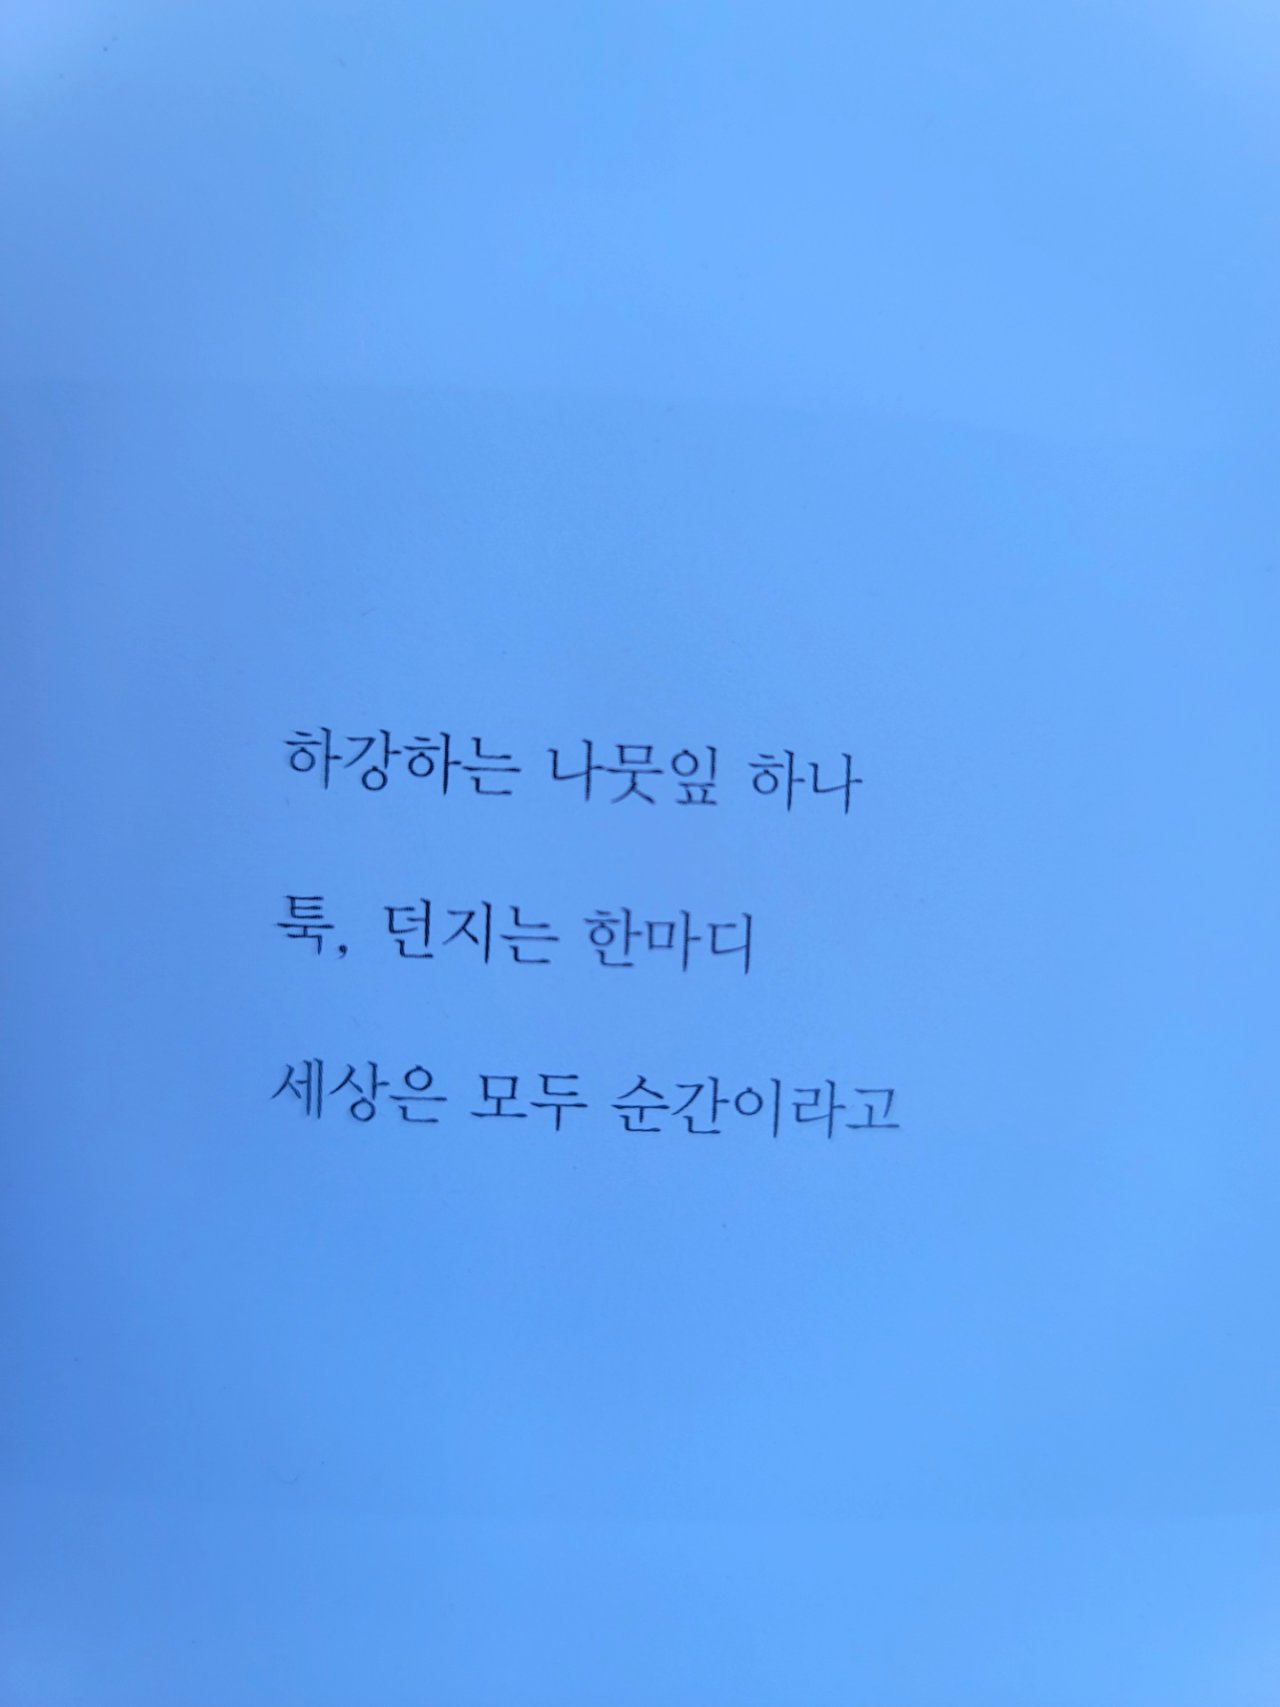 하강하는 나뭇잎 하나
툭, 던지는 한마디
세상은 모두 순간이라고